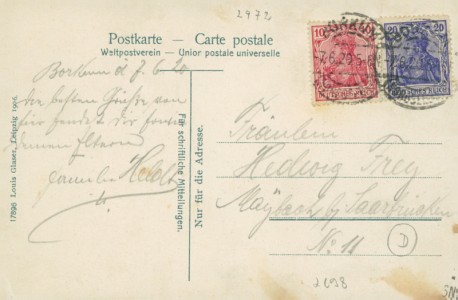 2472
Postkarte - Carte postale
Weltpostverein - Union postale universelle
BORKUM
10 10
20 20
DEUTSCHES REICH
DEUTSCHES REICH
Borkum d. 7.6.20
Die besten Grüße von
hier sendet
Eltern
Familie
17896 Louis Glaser, Leipzig 1906.
Für schriftliche Mitteilungen.
Nur für die Adresse.
Fräulein
Hedwig Frey
Maybach b/ Saarbrücken
No. 11
D
2698